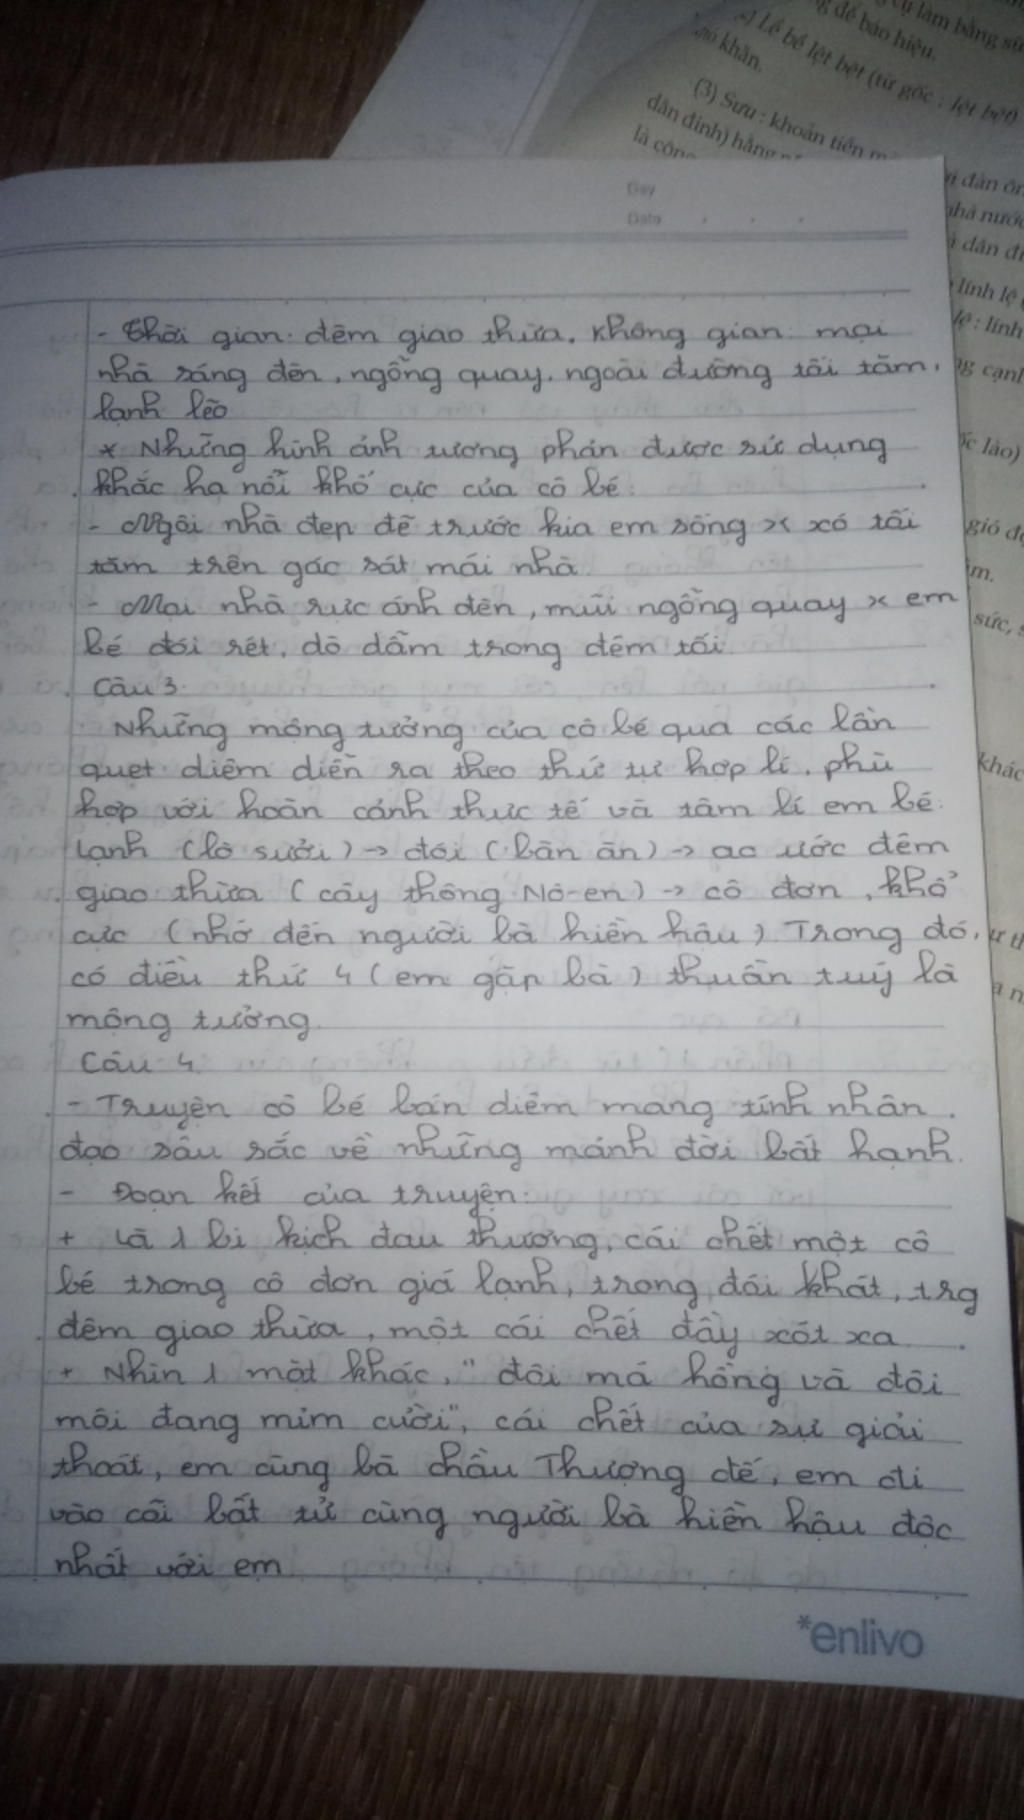 g cụ làm bằng sừ
g để báo hiệu.
Lê bề lệt bệt (từ gốc : lệt bệt)
khăn.
(3) Sưu : khoản tiền
dân đinh) hằng
là công
i đàn ôn
nhà nước
dân đi
lính lệ
lệ : lính
ng cạnh
ốc lào)
gió đ
m.
sức, s
khác
Day
Date
- Thời gian: đêm giao thừa, không gian: mọi
nhà sáng đèn, ngỗng quay, ngoài đường tối tăm,
lạnh lẽo
* Những hình ảnh tương phản được sử dụng
khắc hạ nỗi khổ cực của cô bé:
- Ngôi nhà đẹp đẽ trước kia em sống >< xó tối
tăm trên gác sát mái nhà.
- Mọi nhà rực ánh đèn, mùi ngỗng quay >< em
bé đói rét, dò dẫm trong đêm tối.
Câu 3.
Những mộng tưởng của cô bé qua các lần
quẹt diêm diễn ra theo thứ tự hợp lí, phù
hợp với hoàn cảnh thực tế và tâm lí em bé:
Lạnh (lò sưởi) → đói (bàn ăn) → ao ước đêm
giao thừa (cây thông Nô-en) → cô đơn, khổ
cực (nhớ đến người bà hiền hậu). Trong đó,
có điều thứ 4 (em gặp bà) thuần tuý là
mộng tưởng.
Câu 4.
- Truyện cô bé bán diêm mang tính nhân
đạo sâu sắc về những mảnh đời bất hạnh.
- Đoạn kết của truyện:
+ Là 1 bi kịch đau thương, cái chết một cô
bé trong cô đơn giá lạnh, trong đói khát, trg
đêm giao thừa, một cái chết đầy xót xa
+ Nhìn 1 mặt khác, "đôi má hồng và đôi
môi đang mỉm cười", cái chết của sự giải
thoát, em cùng bà chầu Thượng đế, em đi
vào cõi bất tử cùng người bà hiền hậu độc
nhất với em
*enlivo